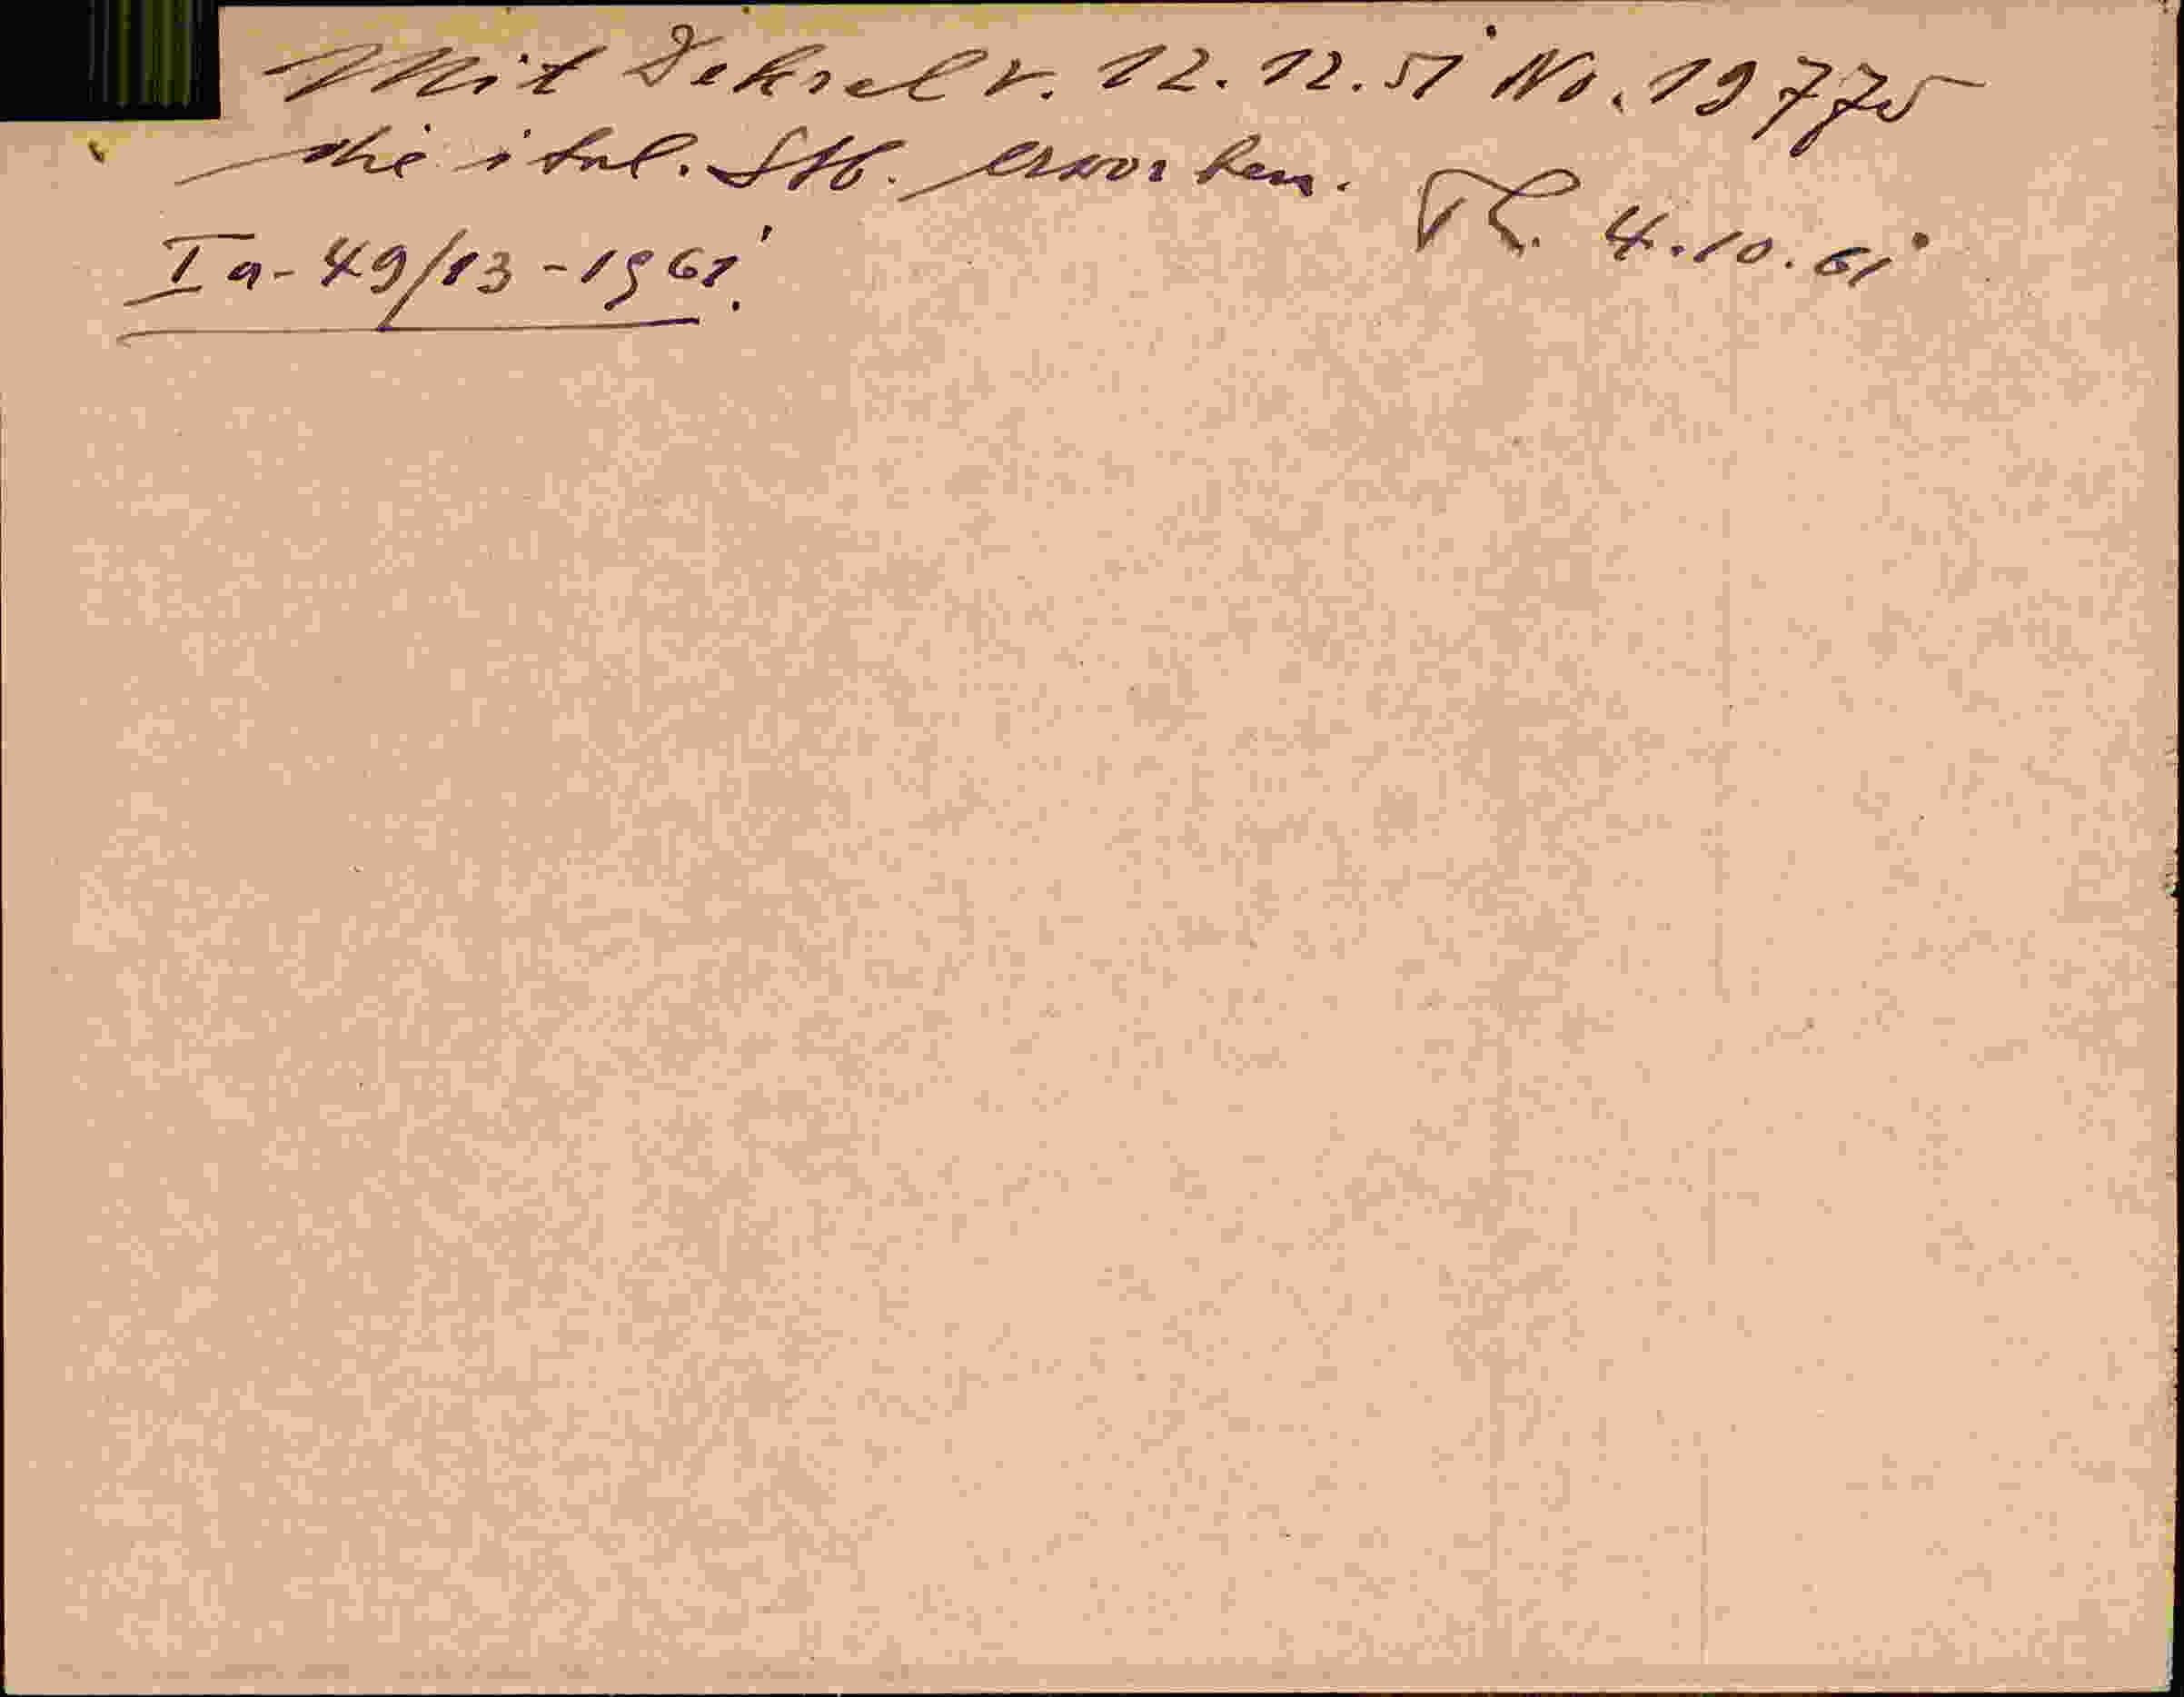 Mit Dekret v. 12.12.51 No. 19775
die ital. Stb. erworben.
Th. 4.10.61
Ia-49/13-1961.